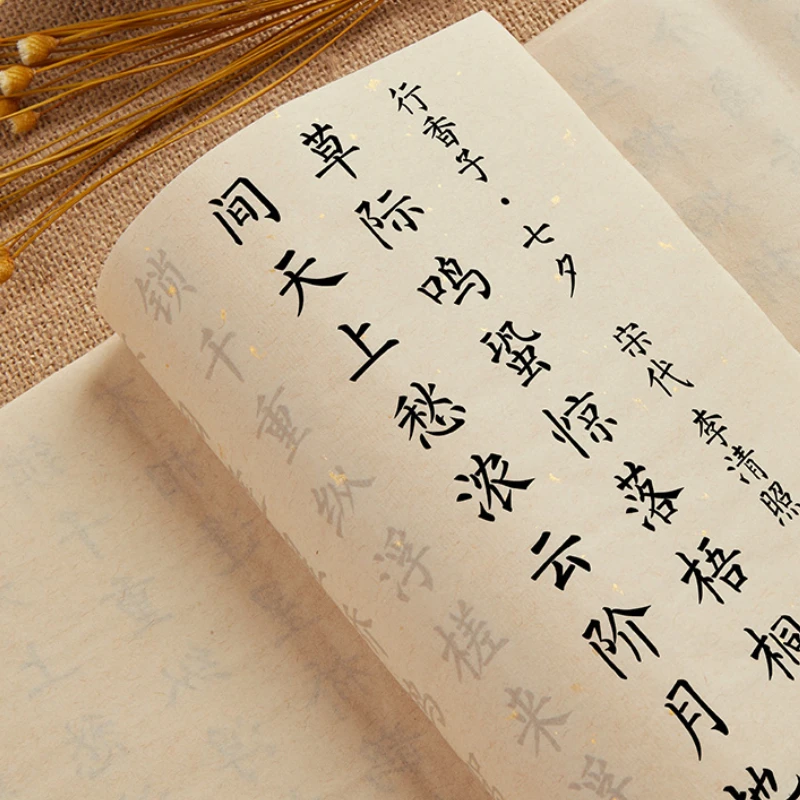 行香子·七夕 宋代 李清照
草际鸣蛩惊落梧桐
间天上愁浓云阶月地
锁千重纵浮槎来浮